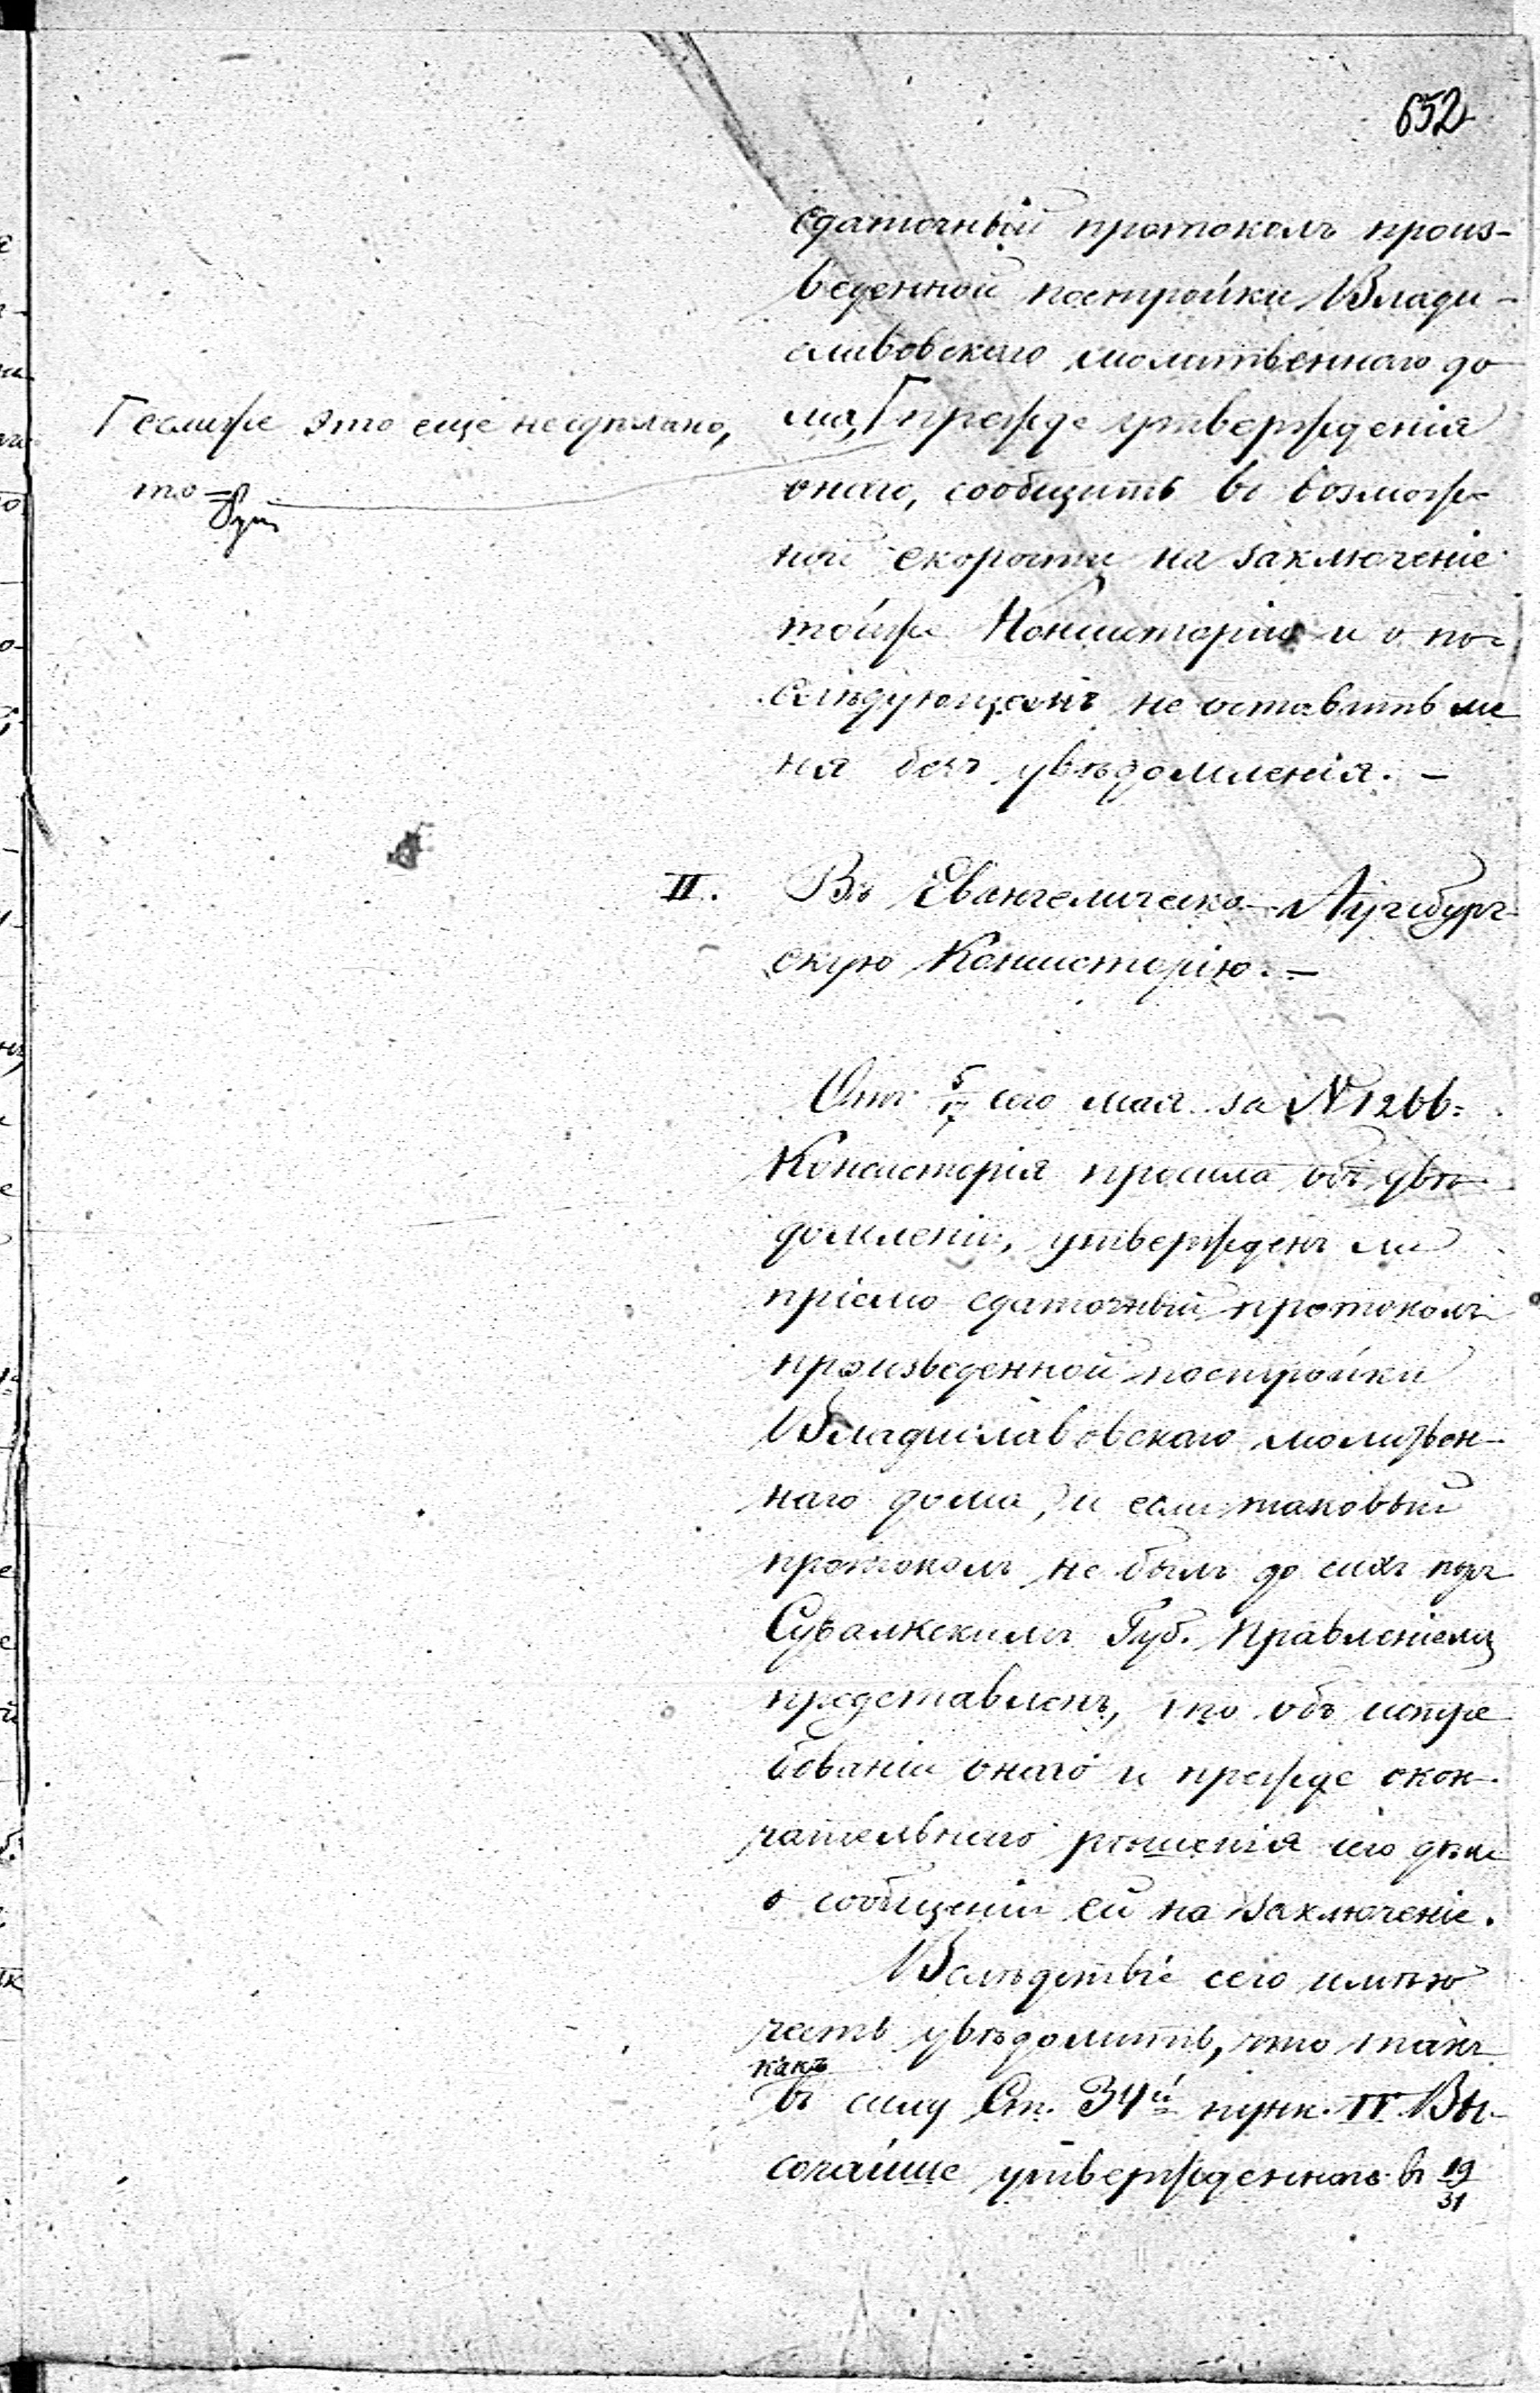 652
сдаточный протоколъ произ-
веденной постройки Влади-
славовскаго молитвеннаго до
ма, Г прежде утвержденія
Г еслиже это еще не сдѣлано,
то =
онаго, сообщить въ возмож-
ной скорости на заключеніе
тойже Консисторіи и о по-
слѣдующемъ не оставить ме
ня безъ увѣдомленія. –
II. Въ Евангелическо-Аугсбург-
скую Консисторію. –
Отъ 5/17 сего мая за № 1266 =
Консисторія просила объ увѣ-
домленіи, утвержденъ ли
пріемо сдаточный протоколъ
произведенной постройки
Владиславовскаго молитвен-
наго дома, и если таковый
протоколъ не былъ до сихъ поръ
Сувалкскимъ Губ. Правленіемъ
представленъ, то объ истре
бованіи онаго и прежде окон-
чательнаго рѣшенія сего дѣла
о сообщеніи ей на заключеніе.
Вслѣдствіе сего имѣю
честь увѣдомить, что такъ
какъ
въ силу Ст. 34й пунк. IV Вы-
сочайше утвержденнаго въ 19/31